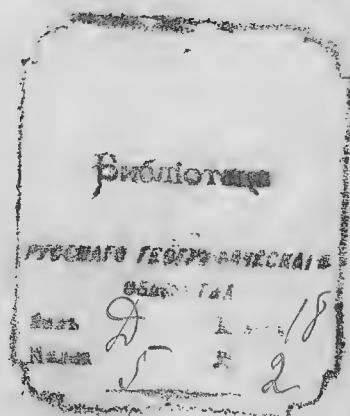 Библіотека
РУССКАГО ГЕОГРАФИЧЕСКАГО
ОБЩЕСТВА
Д 18
5 2